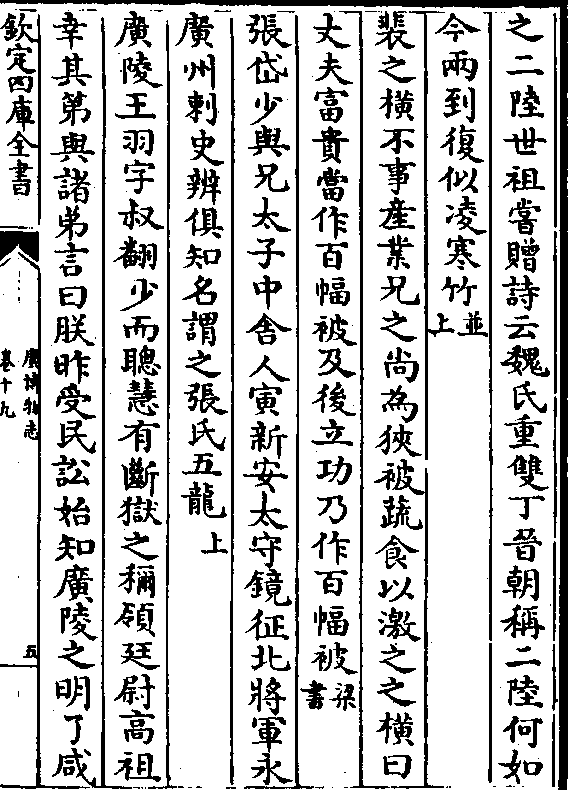 之二陸世祖嘗贈詩云魏氏重雙丁晉朝稱二陸何如
今兩到復似凌寒竹並上
裴之橫不事産業兄之尚為狹被蔬食以激之之橫曰
丈夫富貴當作百幅被及後立功乃作百幅被梁書
張岱少與兄太子中舍人寅新安太守鏡征北將軍永
廣州刺史辨俱知名謂之張氏五龍上
廣陵王羽字叔翻少而聰慧有斷獄之稱領廷尉高祖
幸其第與諸弟言曰朕昨受民訟始知廣陵之明了咸
欽定四庫全書
廣博物志
卷十九
五